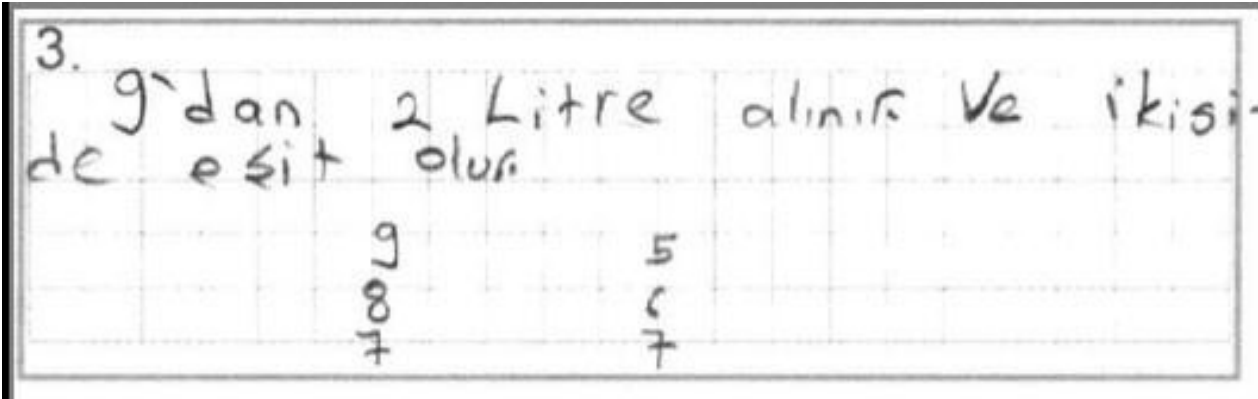 3.
9'dan 2 Litre alınır ve ikisi
de eşit olur.
9 5
8 6
7 7